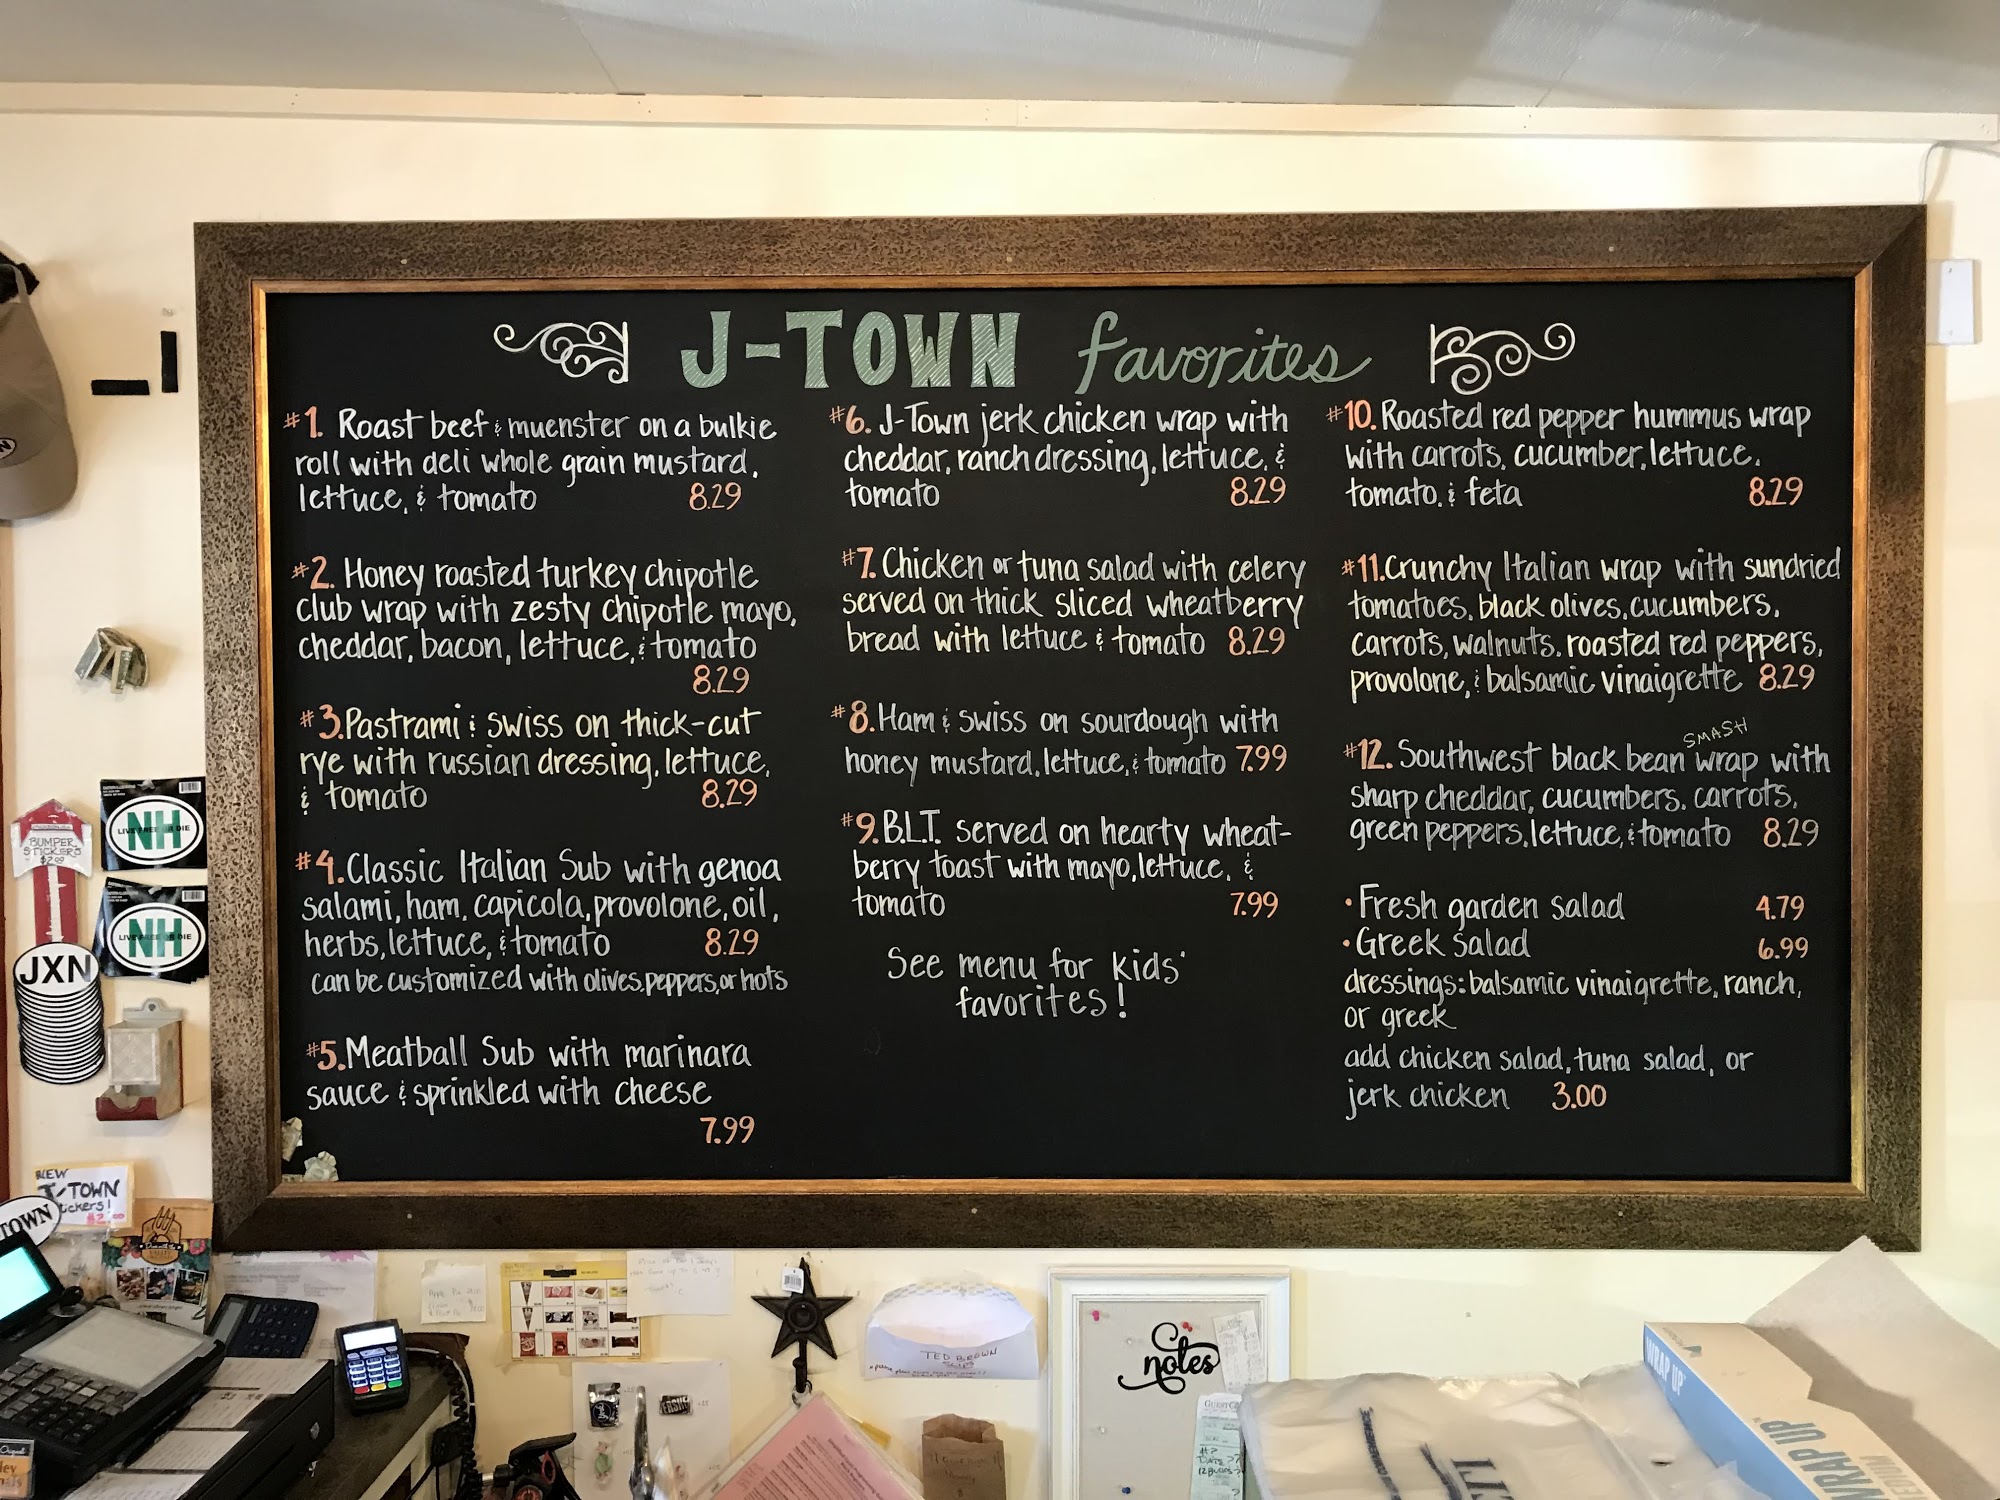 J-TOWN favorites
#1. Roast beef & muenster on a bulkie
roll with deli whole grain mustard,
lettuce, & tomato 8.29
#2. Honey roasted turkey chipotle
club wrap with zesty chipotle mayo,
cheddar, bacon, lettuce, & tomato
8.29
#3. Pastrami & swiss on thick-cut
rye with russian dressing, lettuce,
& tomato 8.29
#4. Classic Italian Sub with genoa
salami, ham, capicola, provolone, oil,
herbs, lettuce, & tomato 8.29
can be customized with olives, peppers, or hots
#5. Meatball Sub with marinara
sauce & sprinkled with cheese
7.99
#6. J-Town jerk chicken wrap with
cheddar, ranch dressing, lettuce, &
tomato 8.29
#7. Chicken or tuna salad with celery
served on thick sliced wheatberry
bread with lettuce & tomato 8.29
#8. Ham & swiss on sourdough with
honey mustard, lettuce, & tomato 7.99
#9. B.L.T. served on hearty wheat-
berry toast with mayo, lettuce, &
tomato 7.99
See menu for kids'
favorites!
#10. Roasted red pepper hummus wrap
with carrots, cucumber, lettuce,
tomato, & feta 8.29
#11. Crunchy Italian wrap with sundried
tomatoes, black olives, cucumbers,
carrots, walnuts, roasted red peppers,
provolone, & balsamic vinaigrette 8.29
SMASH
#12. Southwest black bean wrap with
sharp cheddar, cucumbers, carrots,
green peppers, lettuce, & tomato 8.29
• Fresh garden salad 4.79
• Greek Salad 6.99
dressings: balsamic vinaigrette, ranch,
or greek
add chicken salad, tuna salad, or
jerk chicken 3.00
BUMPER
STICKERS
$2.00
NH
LIVE FREE OR DIE
NH
LIVE FREE OR DIE
JXN
NEW
J-TOWN
stickers!
$2.00
TOWN
TED BROWN
SLIPS
notes
GUEST
WRAP UP
WRAP UP